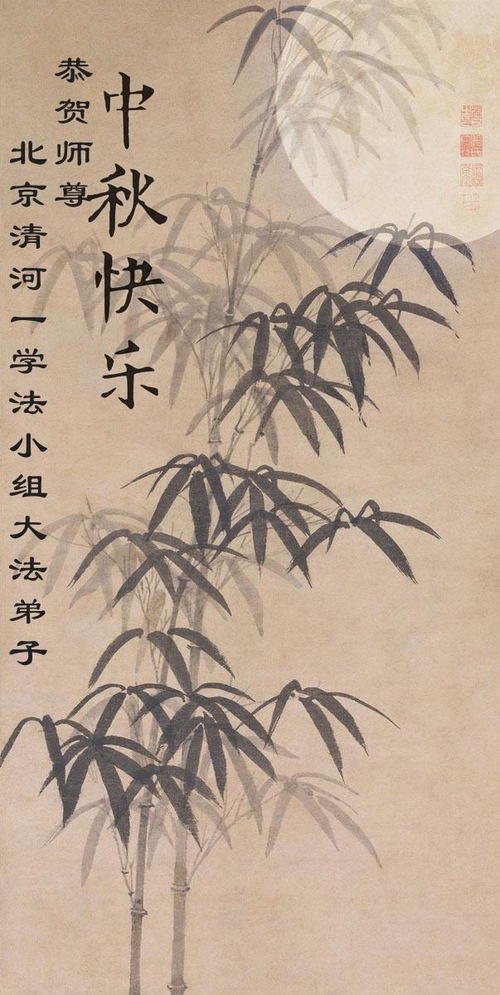 中秋快乐
恭贺师尊
北京清河一学法小组大法弟子